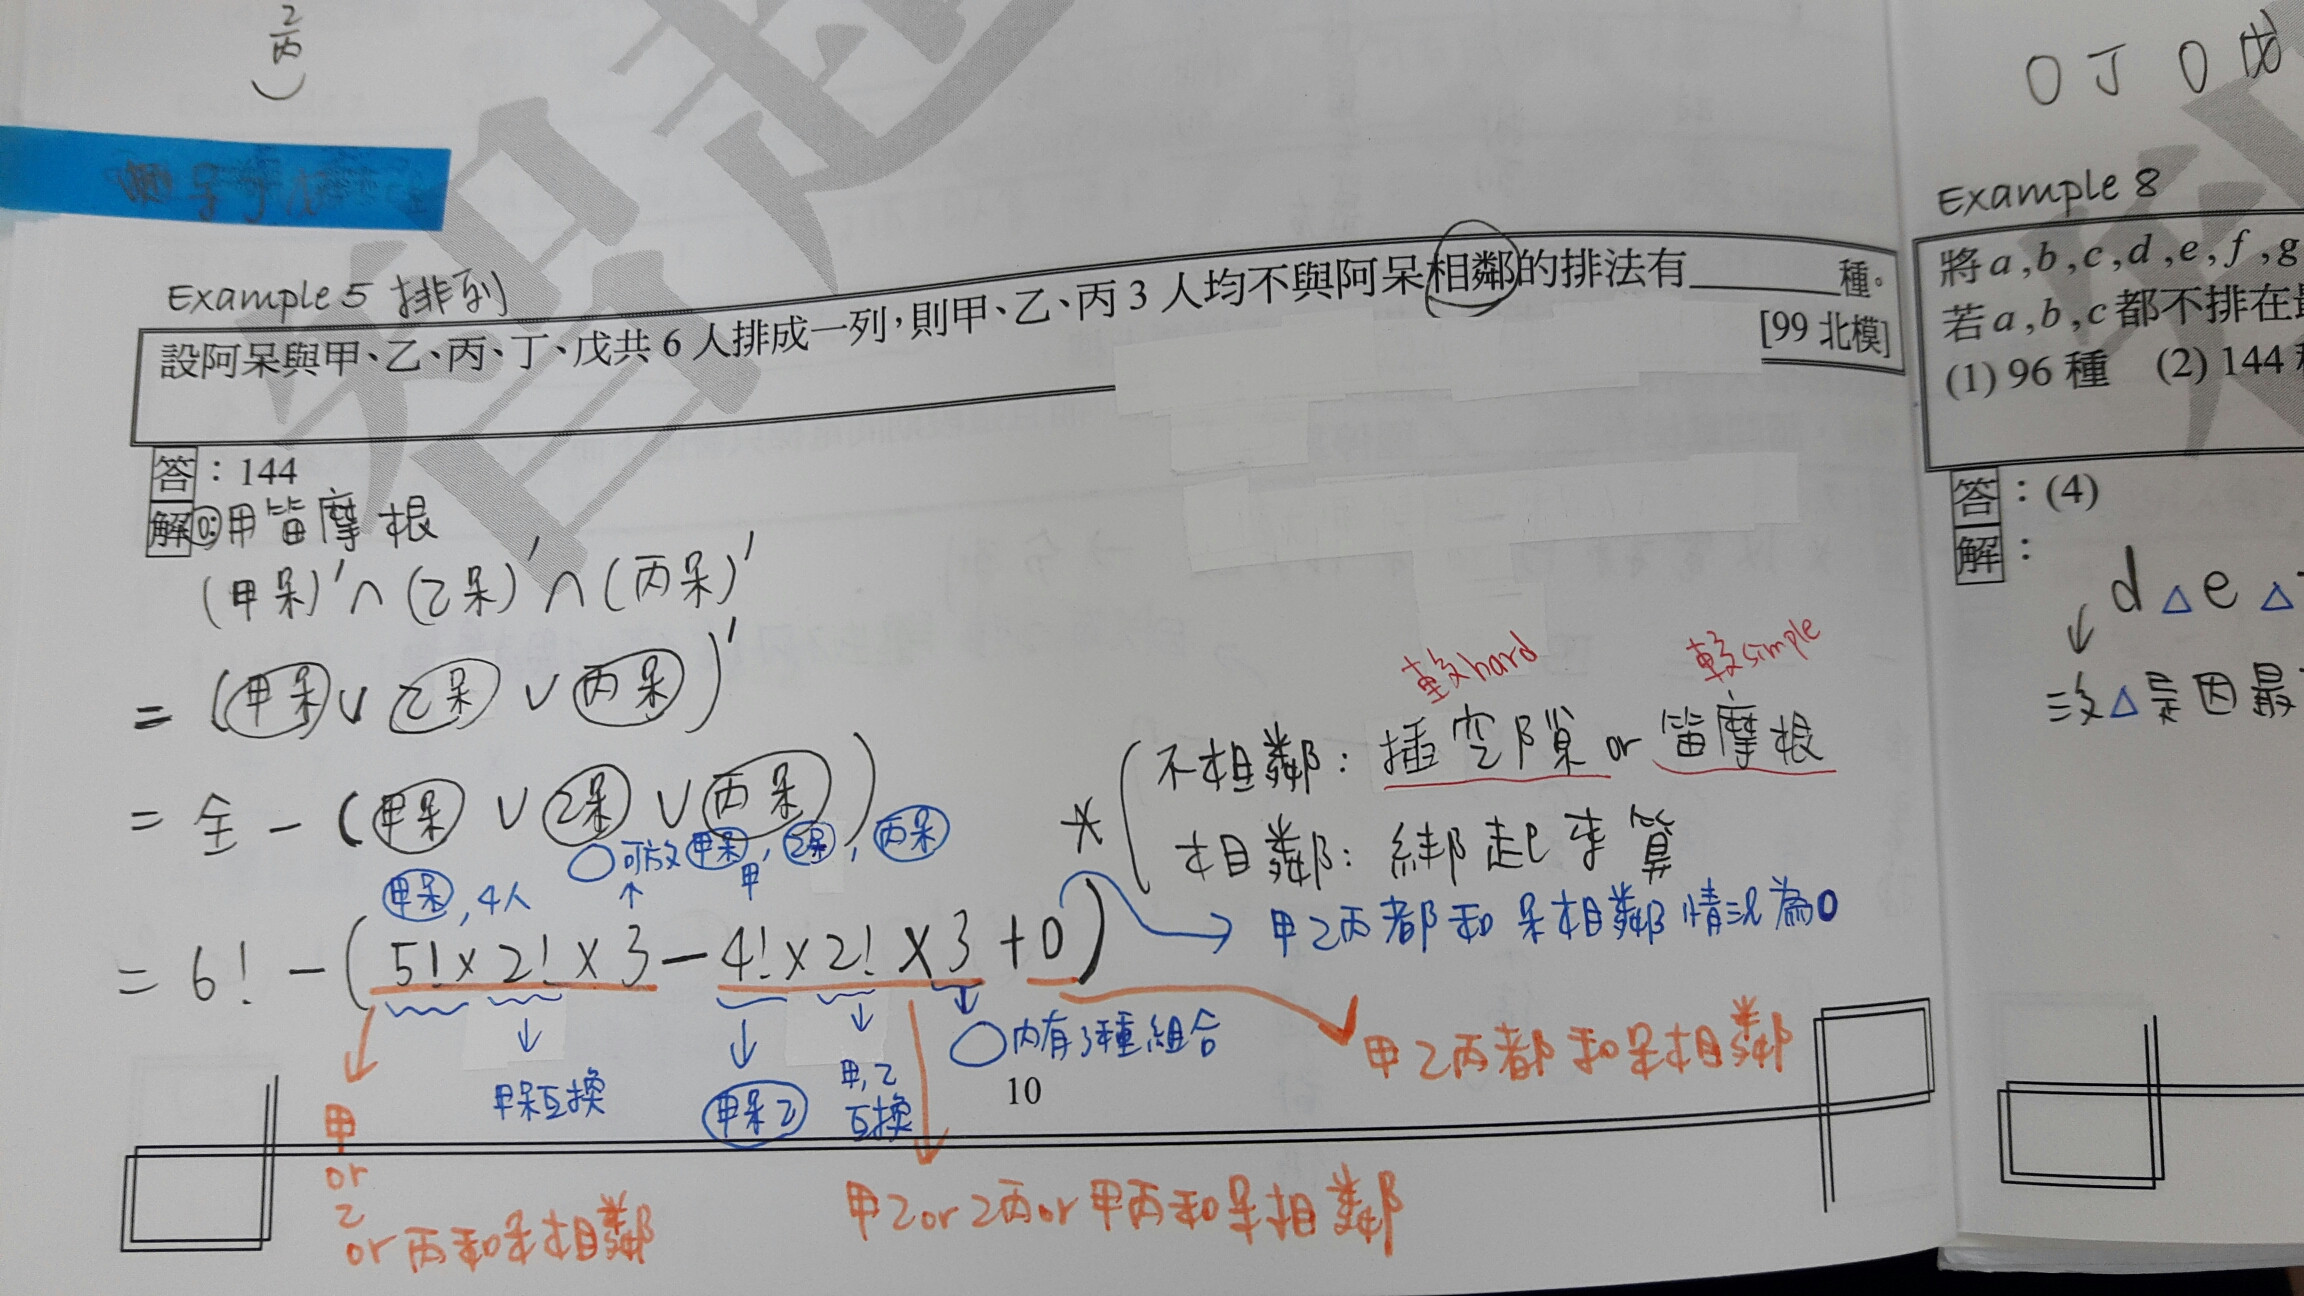 2
丙
)
Example 5 排列
設阿呆與甲、乙、丙、丁、戊共 6 人排成一列,則甲、乙、丙 3 人均不與阿呆相鄰的排法有________種。
[99 北模]
答:144
解:用笛摩根
(甲呆)'∩(乙呆)'∩(丙呆)'
=(甲呆∪乙呆∪丙呆)'
= 全-(甲呆∪乙呆∪丙呆)
甲呆,4人
○可放甲呆,乙呆,丙呆
甲
= 6!-(5!×2!×3-4!×2!×3+0)
甲呆互換
甲呆乙
甲,乙
互換
○內有3種組合
→甲乙丙都和呆相鄰情況為0
甲乙丙都和呆相鄰
甲
or
乙
or 丙和呆相鄰
甲乙or乙丙or甲丙和呆相鄰
較hard
較simple
* 不相鄰:插空隙 or 笛摩根
相鄰:綁起來算
10
○丁○戊
Example 8
將 a,b,c,d,e,f,g
若 a,b,c 都不排在
(1) 96 種 (2) 144
答:(4)
解:
d△e△
沒△是因最